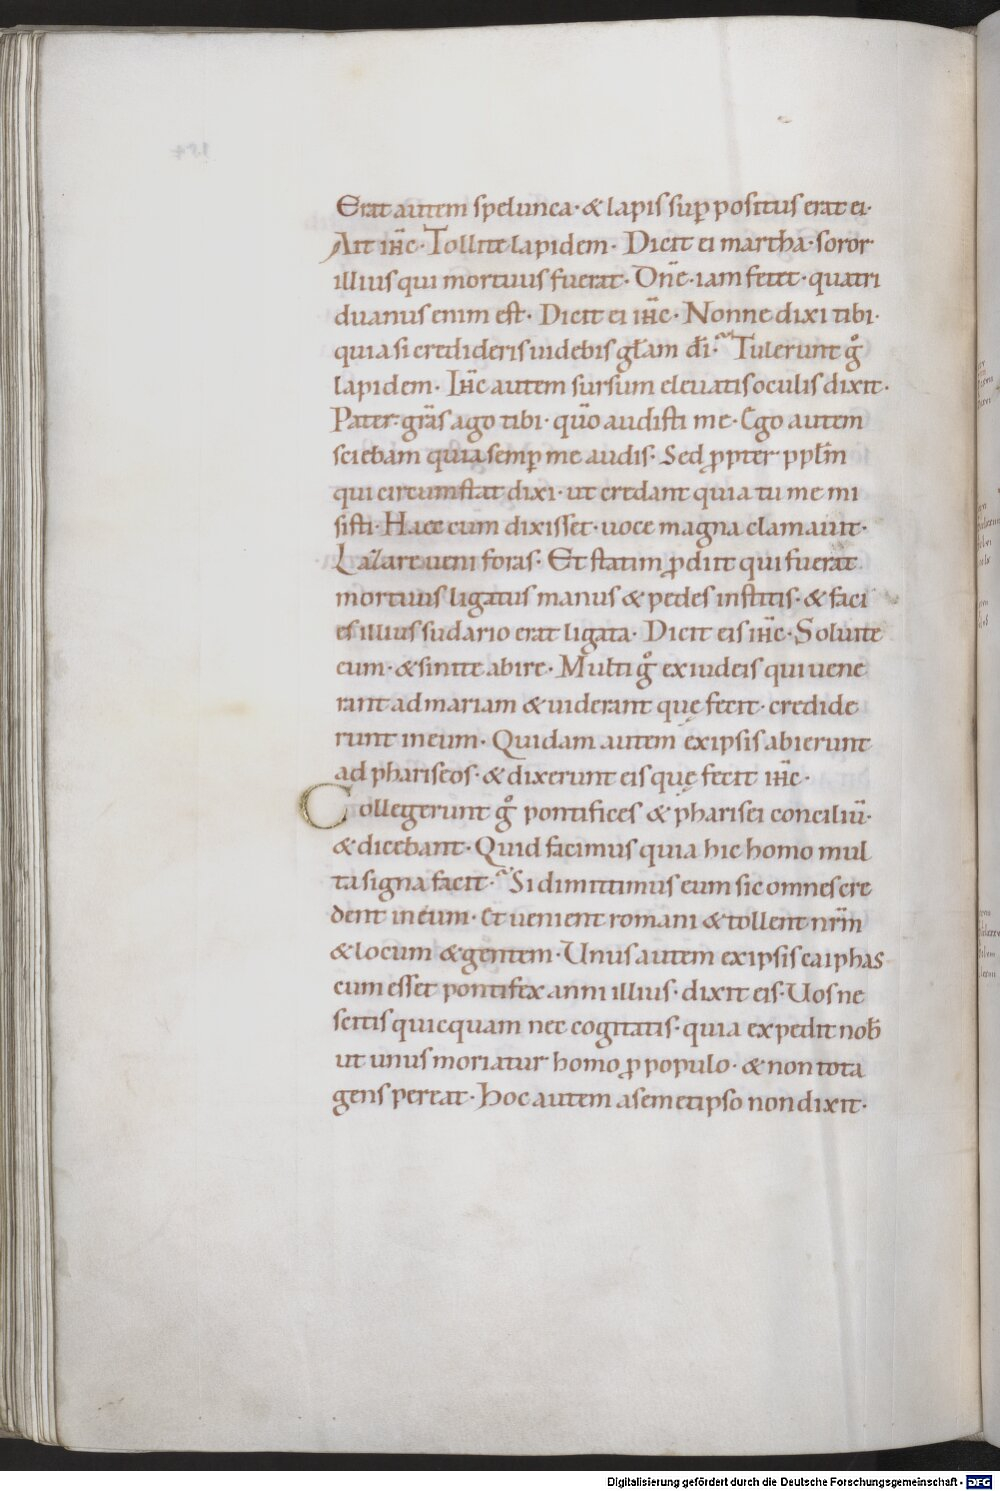 Erat autem spelunca· & lapis suꝑ positus erat ei·
Ait ih̅c· Tollite lapidem· Dicit ei martha· soror
illius qui mortuus fuerat· Dn̅e· iam fetet· quatri
duanus enim est· Dicit ei ih̅c· Nonne dixi tibi·
quia si credideris uidebis gl̅am di̅· Tulerunt gͦ
lapidem· Ih̅c autem sursum eleuatis oculis dixit·
Pater· gra̅s ago tibi· qu̅o audisti me· Ego autem
sciebam quia semꝑ me audis· Sed ꝓpter ppl̅m
qui circumstat dixi· ut credant quia tu me mi
sisti· Haec cum dixisset· uoce magna clamauit·
Lazare ueni foras· Et statim ꝓdiit qui fuerat
mortuus ligatus manus & pedes institis· & faci
es illius sudario erat ligata· Dicit eis ih̅c· Soluite
eum· & sinite abire· Multi gͦ ex iudeis qui uene
rant ad mariam & uiderant quę fecit· credide
runt in eum· Quidam autem ex ipsis abierunt
ad phariseos· & dixerunt eis quę fecit ih̅c·
Collegerunt gͦ pontifices & pharisei conciliu̅·
& dicebant· Quid facimus quia hic homo mul
ta signa facit· Si dimittimus eum sic omnes cre
dent in eum· Et uenient romani & tollent nr̅m
& locum & gentem· Unus autem ex ipsis caiphas
cum esset pontifex anni illius· dixit eis· Uos ne
scitis quicquam nec cogitatis· quia expedit nob̅
ut unus moriatur homo ꝓ populo· & non tota
gens pereat· Hoc autem a semetipso non dixit·
Digitalisierung gefördert durch die Deutsche Forschungsgemeinschaft - DFG